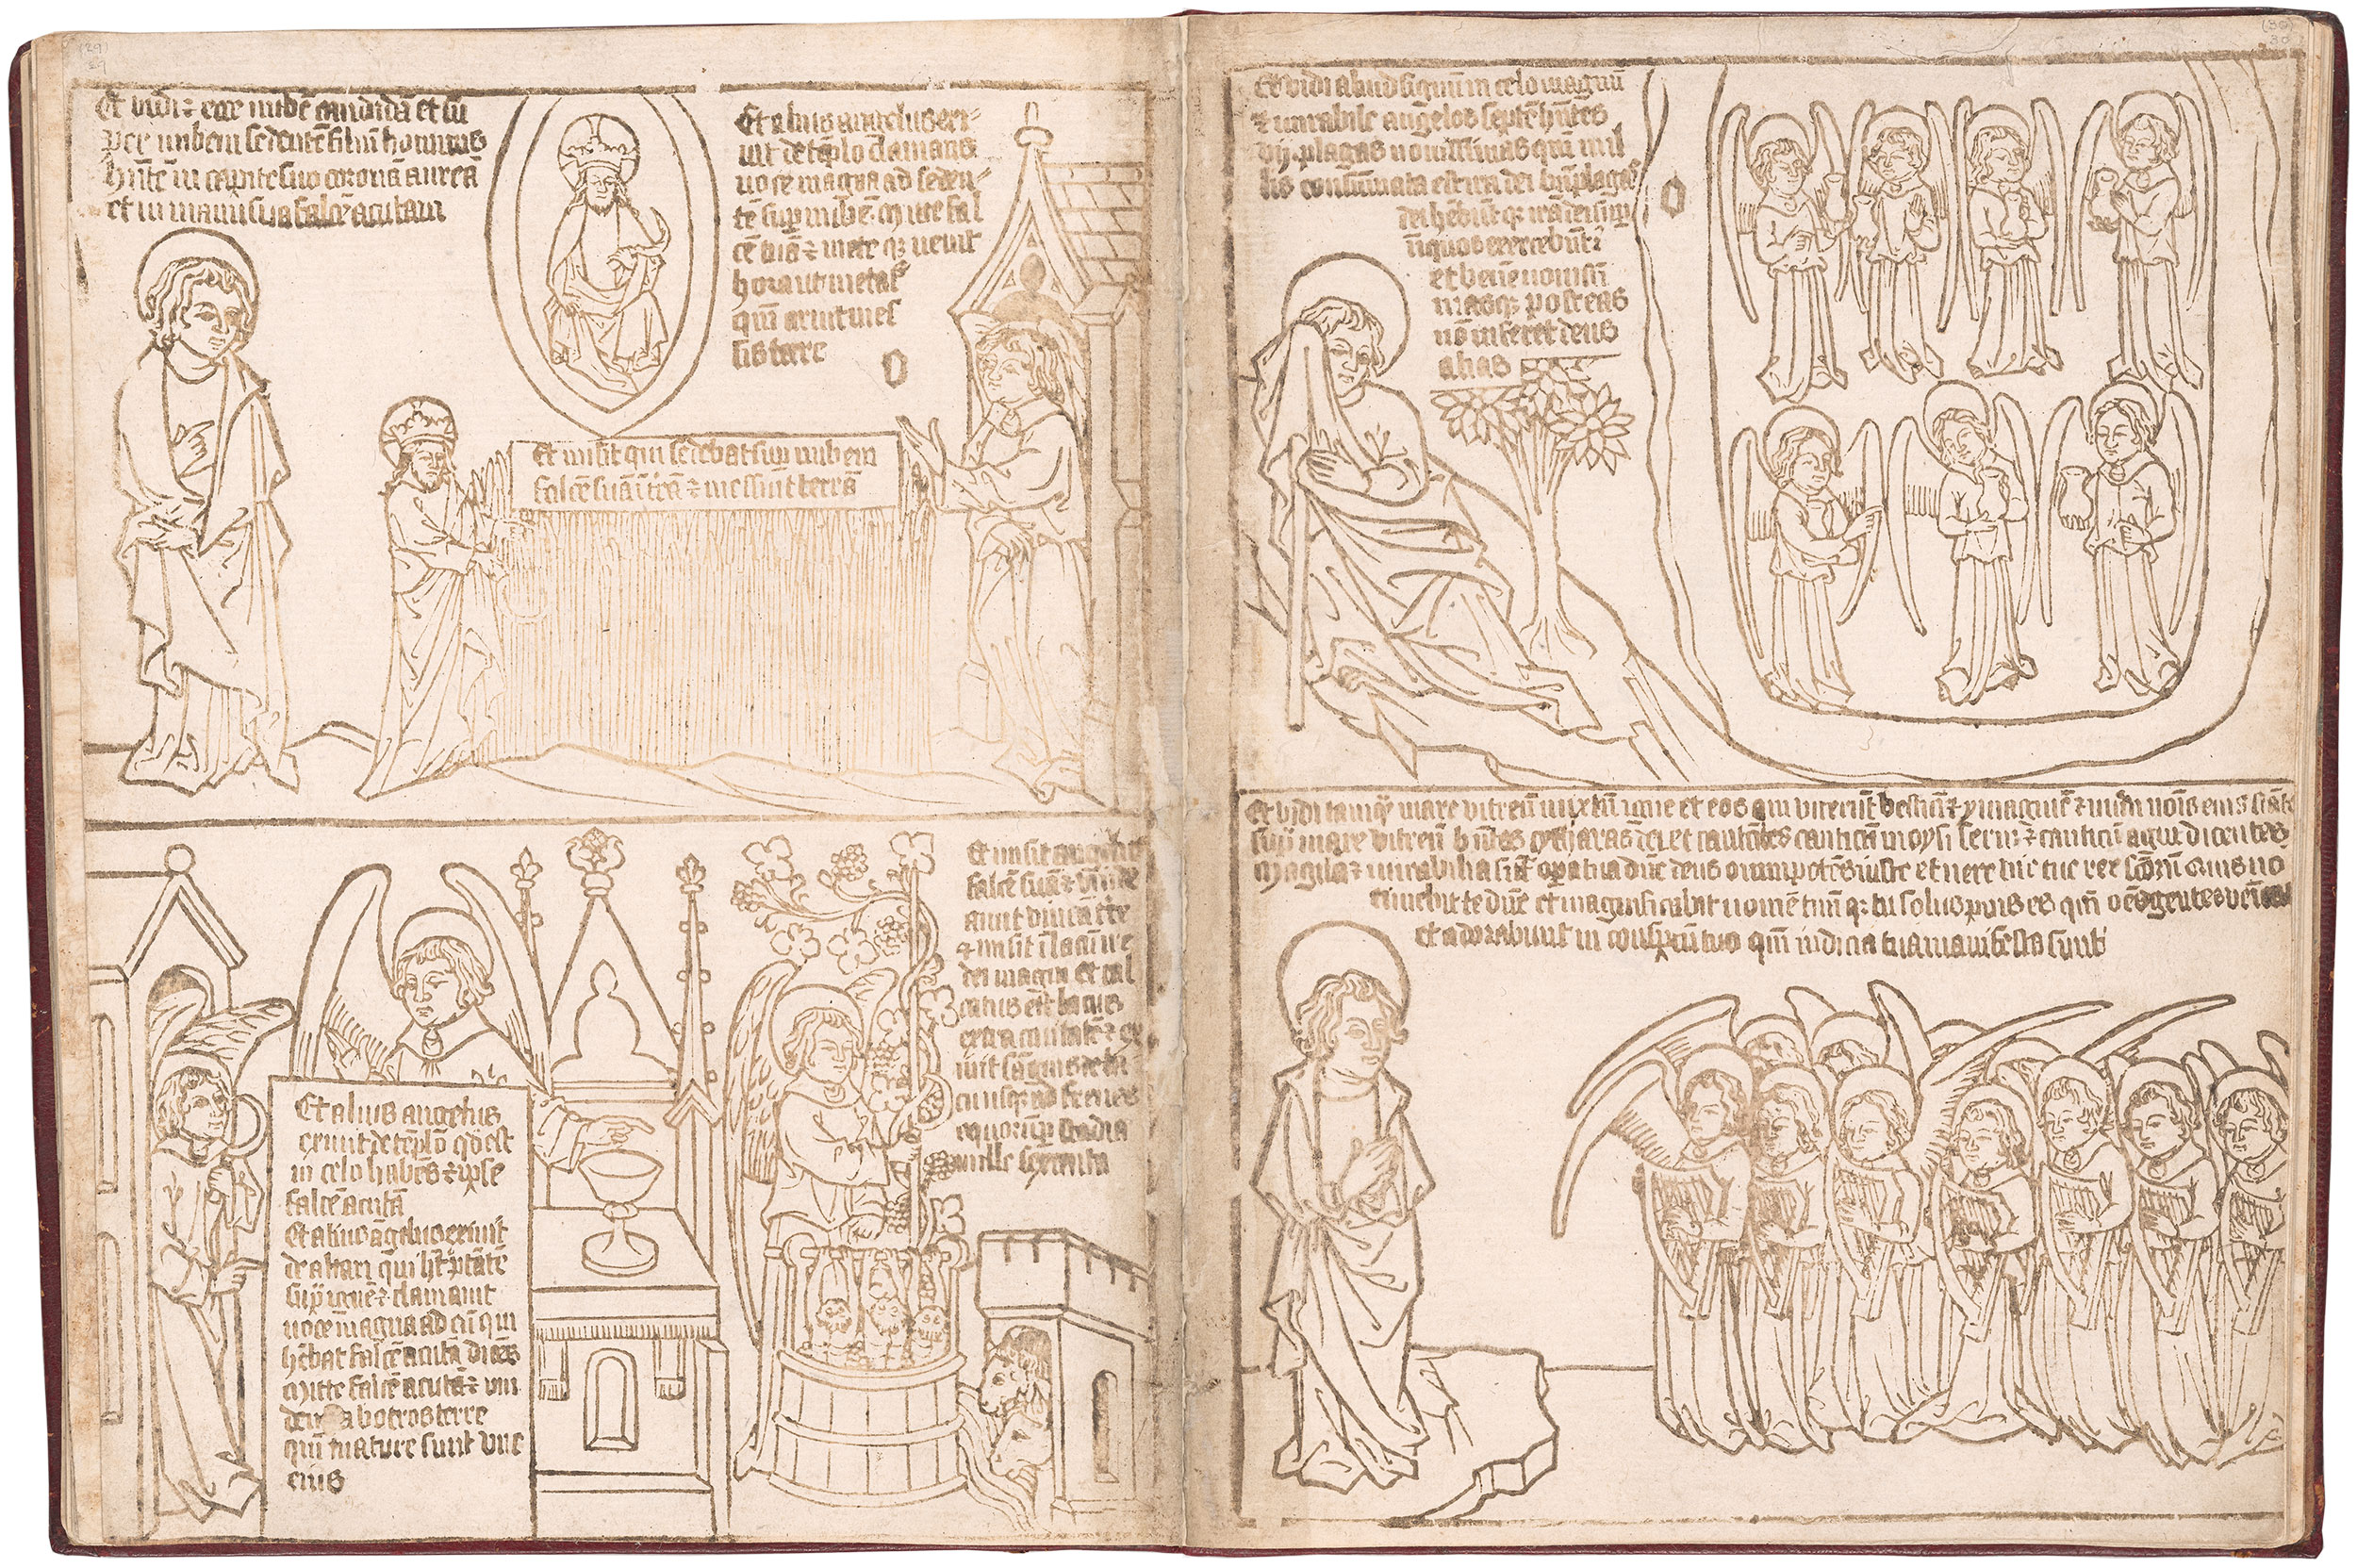 (29)
29
Et vidi ⁊ ecce nubē candidā et sū
per nubem sedentē filiū hominis
hn̄tē in capite suo coronā aureā
et in manu sua falcē acutam
Et alius angelus exi-
uit de tēplo clamans
uoce magna ad seden-
tē suꝑ nubē mitte fal
cē tuā ⁊ mete qꝫ uenit
hora ut metat͛
qm̄ aruit mes
sis terre
Et misit qui sedebat suꝑ nubem
falcē suā ī trā ⁊ messuit terrā
Et alius angelus
exiuit de tēplo qd̄ est
in celo habēs ⁊ ipse
falcē acutā
Et alius āgelus exiuit
de altari qui hꝫ ptātē
supͬ ignē ⁊ clamauit
uoce magna ad eū qui
hēbat falcē acutā dicēs
Mitte falcē acutā ⁊ vin
botros terre
qm̄ mature sunt vue
eius
Et misit angelus
falcē suā ⁊ vīnde
auit vineā tre
⁊ misit ī lacū ire
dei magnū Et cal
catus est lacus
extra ciuitatē ⁊ ex
iuit sāguis de la
cu usqꝫ ad frenos
equorū ꝑ stadia
mille sexcenta
(30)
30
Et vidi aliud signū in celo magnū
⁊ mirabile angelos septē hn̄tes
vij. plagas nouissimas qm̄ in il
lis consūmata est ira dei
dei
nō inferet deus
alias
Et vidi tamqͣ mare vitreū mixtū igne et eos qui vicerūt bestiā ⁊ ymaginē ⁊ nūm nois eius stātes
supͬ mare vitreū hn̄tes cytharas dei et cantātes canticū moysi serui ⁊ canticū agni dicentes
Magna ⁊ mirabilia sūt opera tua dn̄e deus omnipotēs iuste et uere vie tue rex sctorū Quis nō
timebit te dn̄e et magnificabit nomē tuū qꝫ tu solus pius es qm̄ oēs gentes
et adorabunt in conspectu tuo qm̄ iudicia tua manifesta sunt